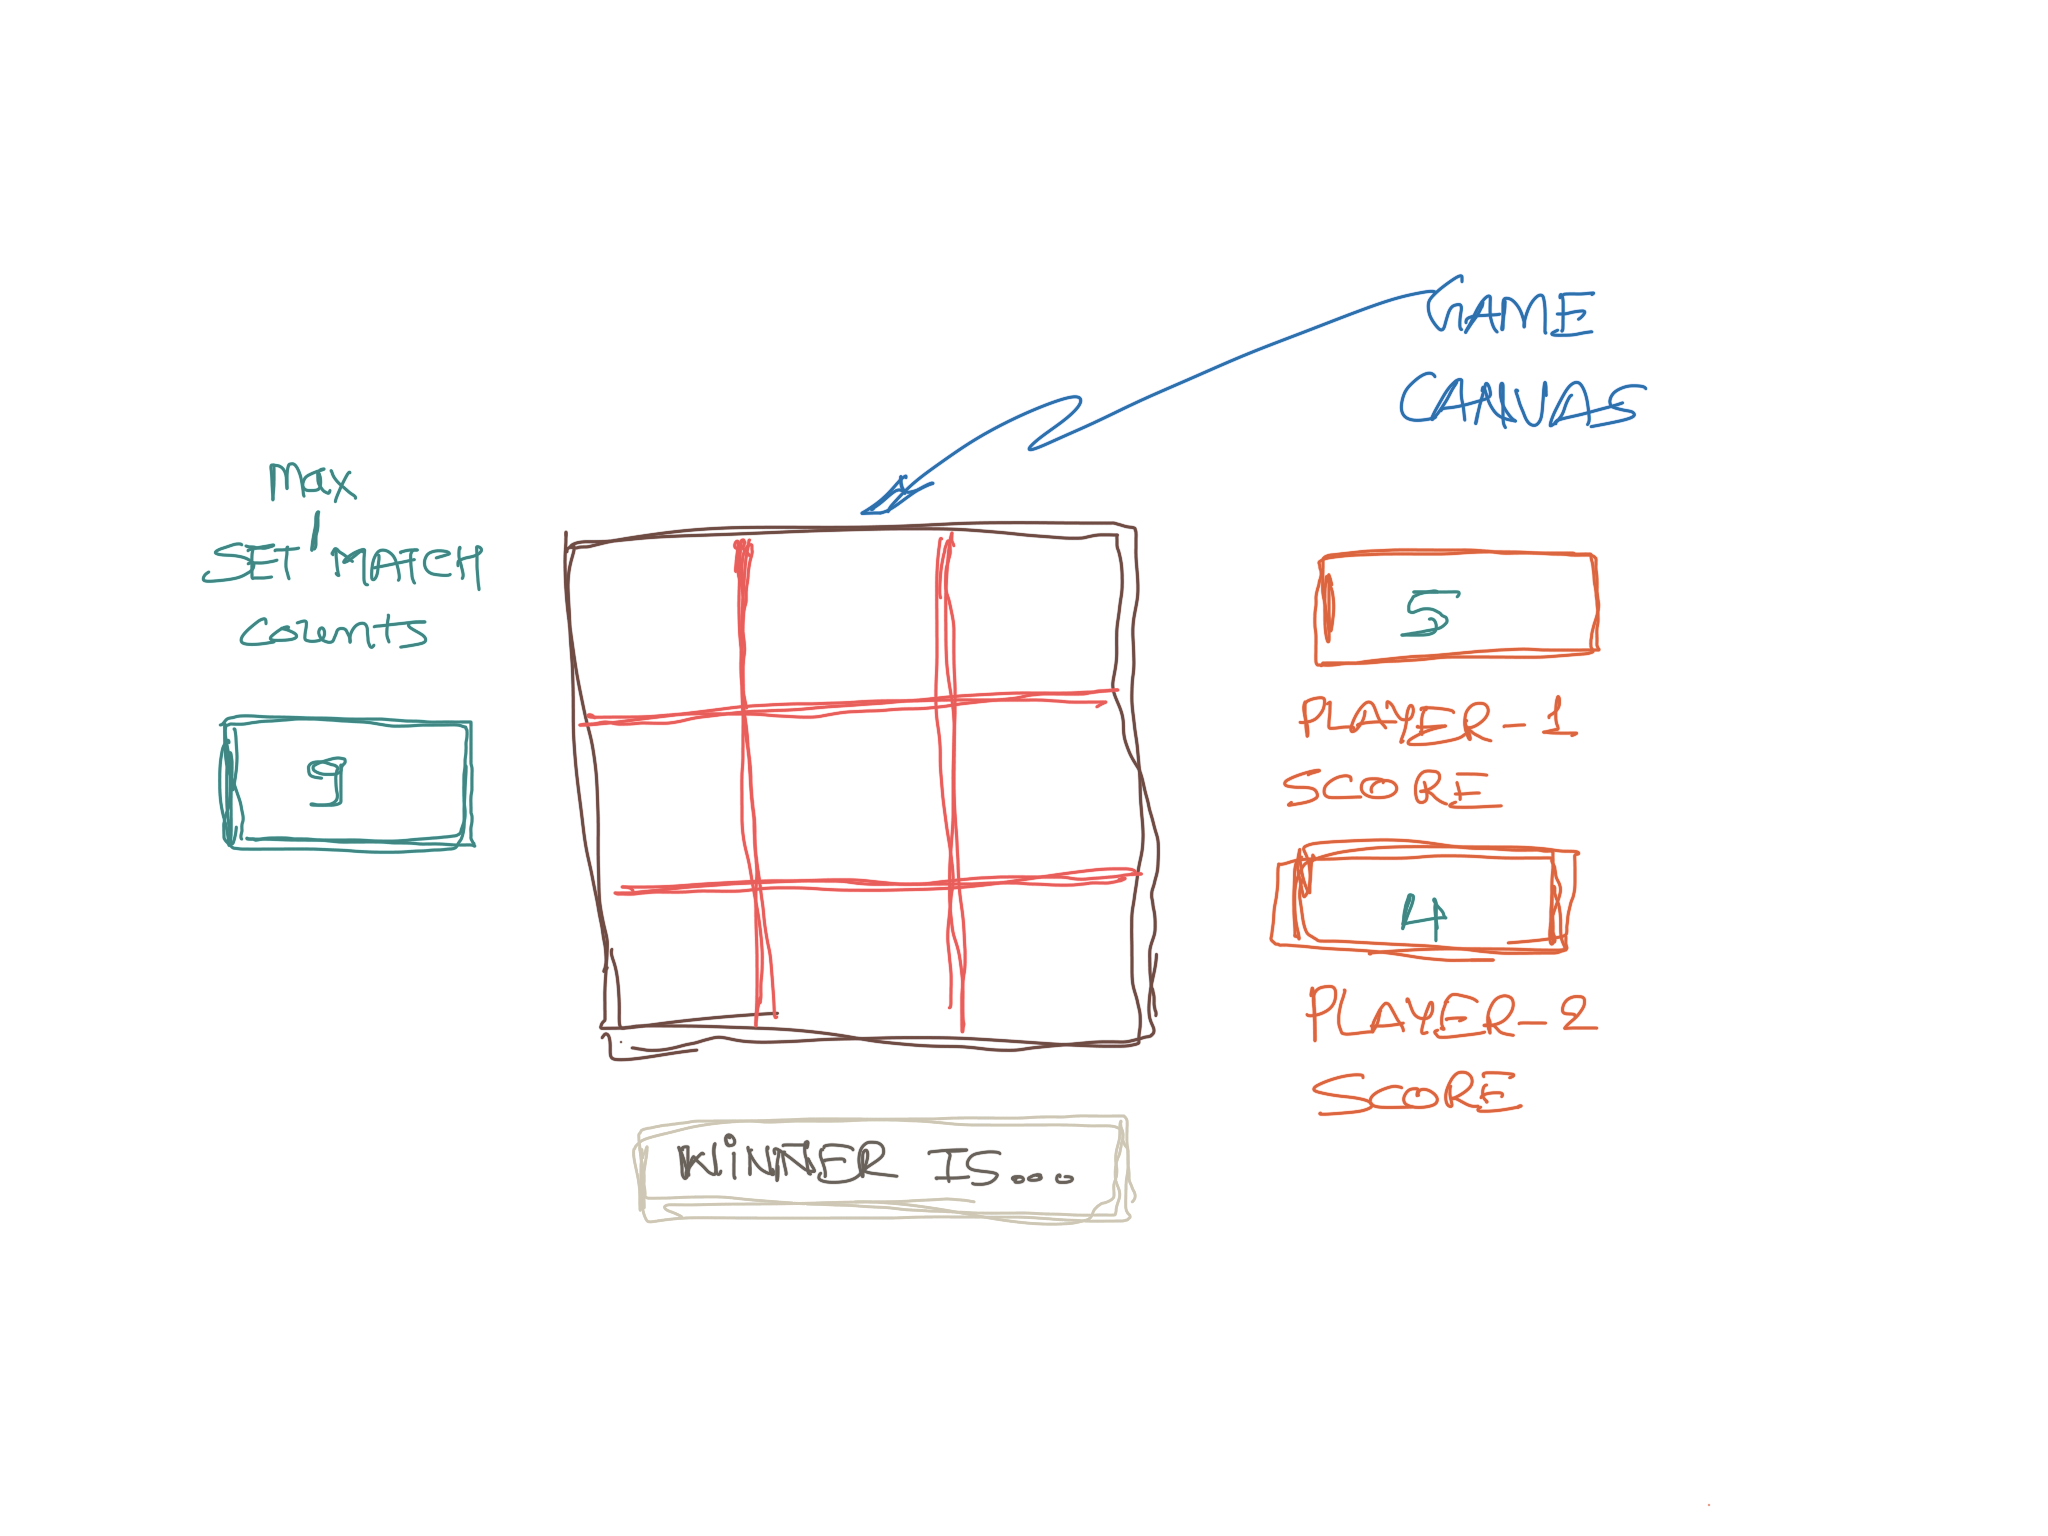 GAME
CANVAS
Max
SET MATCH
counts
9
5
PLAYER-1
SCORE
4
PLAYER-2
SCORE
WINNER IS....